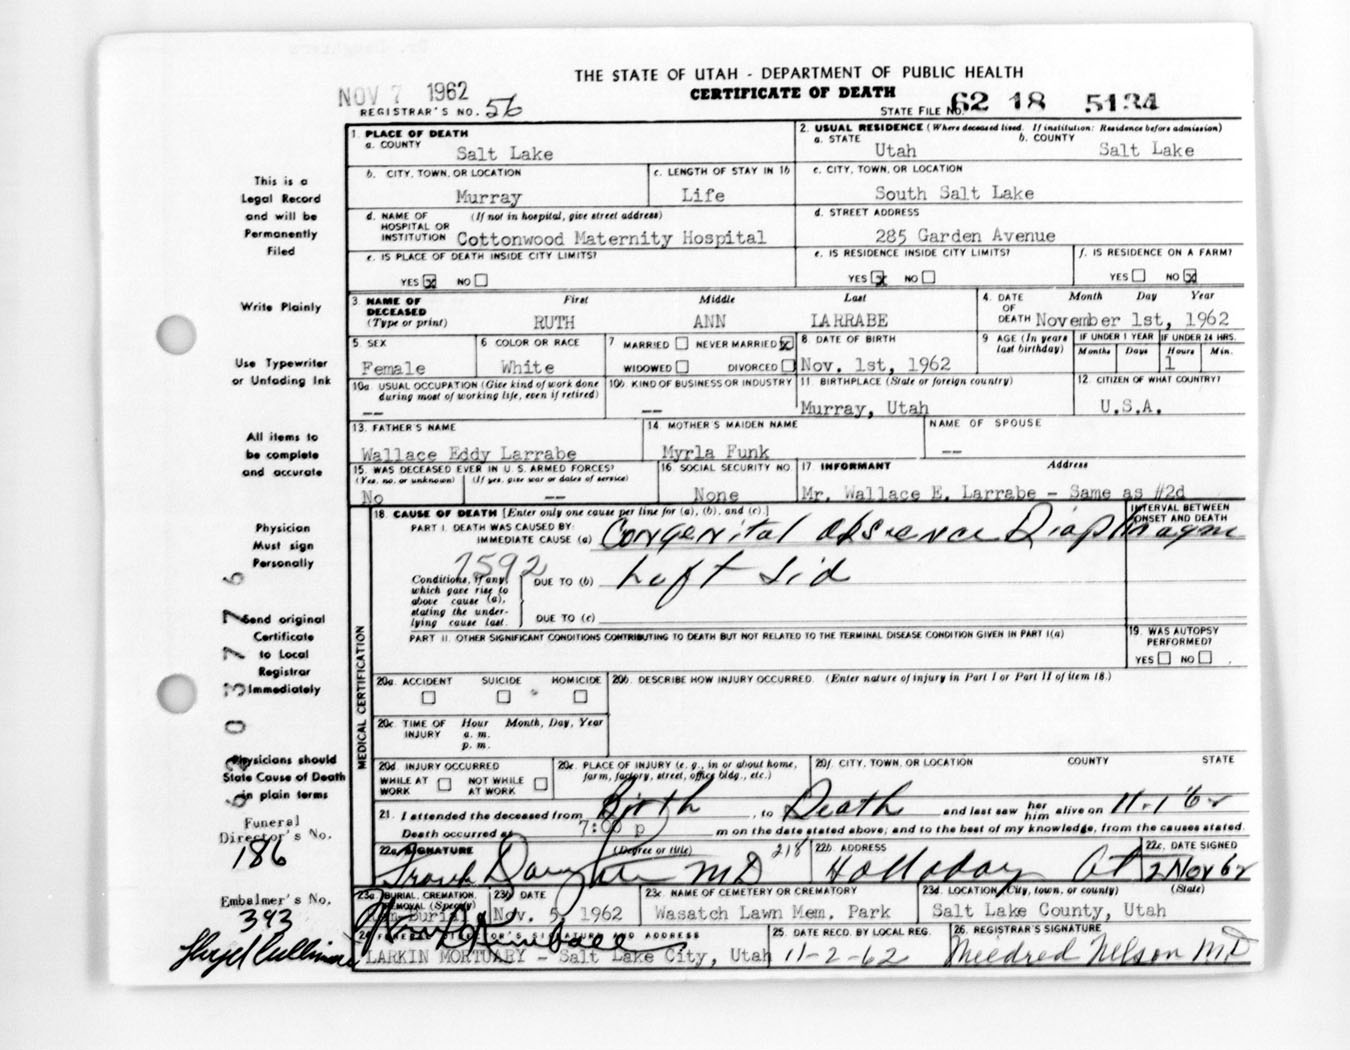 THE STATE OF UTAH - DEPARTMENT OF PUBLIC HEALTH
NOV 7 1962
CERTIFICATE OF DEATH
REGISTRAR'S NO. 56
STATE FILE NO. 62 18 5134
1. PLACE OF DEATH
a. COUNTY
Salt Lake
2. USUAL RESIDENCE (Where deceased lived. If institution: Residence before admission)
a. STATE b. COUNTY
Utah Salt Lake
b. CITY, TOWN, OR LOCATION
Murray
c. LENGTH OF STAY IN 1b
Life
c. CITY, TOWN, OR LOCATION
South Salt Lake
d. NAME OF HOSPITAL OR INSTITUTION (If not in hospital, give street address)
Cottonwood Maternity Hospital
d. STREET ADDRESS
285 Garden Avenue
e. IS PLACE OF DEATH INSIDE CITY LIMITS?
YES x NO
e. IS RESIDENCE INSIDE CITY LIMITS?
YES x NO
f. IS RESIDENCE ON A FARM?
YES NO x
3. NAME OF DECEASED (Type or print)
First Middle Last
RUTH ANN LARRABE
4. DATE OF DEATH Month Day Year
November 1st, 1962
5. SEX
Female
6 COLOR OR RACE
White
7 MARRIED NEVER MARRIED x
WIDOWED DIVORCED
8. DATE OF BIRTH
Nov. 1st, 1962
9 AGE (In years last birthday)
IF UNDER 1 YEAR IF UNDER 24 HRS.
Months Days Hours Min.
1
10a. USUAL OCCUPATION (Give kind of work done during most of working life, even if retired)
--
10b. KIND OF BUSINESS OR INDUSTRY
--
11. BIRTHPLACE (State or foreign country)
Murray, Utah
12. CITIZEN OF WHAT COUNTRY?
U.S.A.
13. FATHER'S NAME
Wallace Eddy Larrabe
14 MOTHER'S MAIDEN NAME
Myrla Funk
NAME OF SPOUSE
--
15. WAS DECEASED EVER IN U. S. ARMED FORCES?
(Yes, no, or unknown) (If yes, give war or dates of service)
No --
16 SOCIAL SECURITY NO.
None
17. INFORMANT Address
Mr. Wallace E. Larrabe - Same as #2d
18. CAUSE OF DEATH [Enter only one cause per line for (a), (b), and (c).]
INTERVAL BETWEEN ONSET AND DEATH
PART I. DEATH WAS CAUSED BY:
IMMEDIATE CAUSE (a) Congenital absence Diaphragm
7592
Conditions, if any, which gave rise to above cause (a), stating the underlying cause last.
DUE TO (b) Left Sid
DUE TO (c)
PART II. OTHER SIGNIFICANT CONDITIONS CONTRIBUTING TO DEATH BUT NOT RELATED TO THE TERMINAL DISEASE CONDITION GIVEN IN PART I(a)
19. WAS AUTOPSY PERFORMED?
YES NO
MEDICAL CERTIFICATION
20a. ACCIDENT SUICIDE HOMICIDE
20b. DESCRIBE HOW INJURY OCCURRED. (Enter nature of injury in Part I or Part II of item 18.)
20c. TIME OF INJURY Hour Month, Day, Year
a. m.
p. m.
20d. INJURY OCCURRED
WHILE AT WORK NOT WHILE AT WORK
20e. PLACE OF INJURY (e. g., in or about home, farm, factory, street, office bldg., etc.)
20f. CITY, TOWN, OR LOCATION COUNTY STATE
21. I attended the deceased from Birth, to Death and last saw her him alive on 11-1-62
Death occurred at 7:00 p m on the date stated above; and to the best of my knowledge, from the causes stated.
22a. SIGNATURE (Degree or title)
Frank Daughters MD 218
22b. ADDRESS
Holladay Ut
22c. DATE SIGNED
2 Nov 62
23a BURIAL, CREMATION, REMOVAL (Specify)
Burial
23b DATE
Nov. 5, 1962
23c. NAME OF CEMETERY OR CREMATORY
Wasatch Lawn Mem. Park
23d. LOCATION (City, town, or county) (State)
Salt Lake County, Utah
24 FUNERAL DIRECTOR'S SIGNATURE AND ADDRESS
LARKIN MORTUARY - Salt Lake City, Utah
25. DATE RECD. BY LOCAL REG.
11-2-62
26. REGISTRAR'S SIGNATURE
Mildred Nelson MD
This is a
Legal Record
and will be
Permanently
Filed
Write Plainly
Use Typewriter
or Unfading Ink
All items to
be complete
and accurate
Physician
Must sign
Personally
Send original
Certificate
to Local
Registrar
Immediately
Physicians should
State Cause of Death
in plain terms
Funeral
Director's No.
186
Embalmer's No.
393